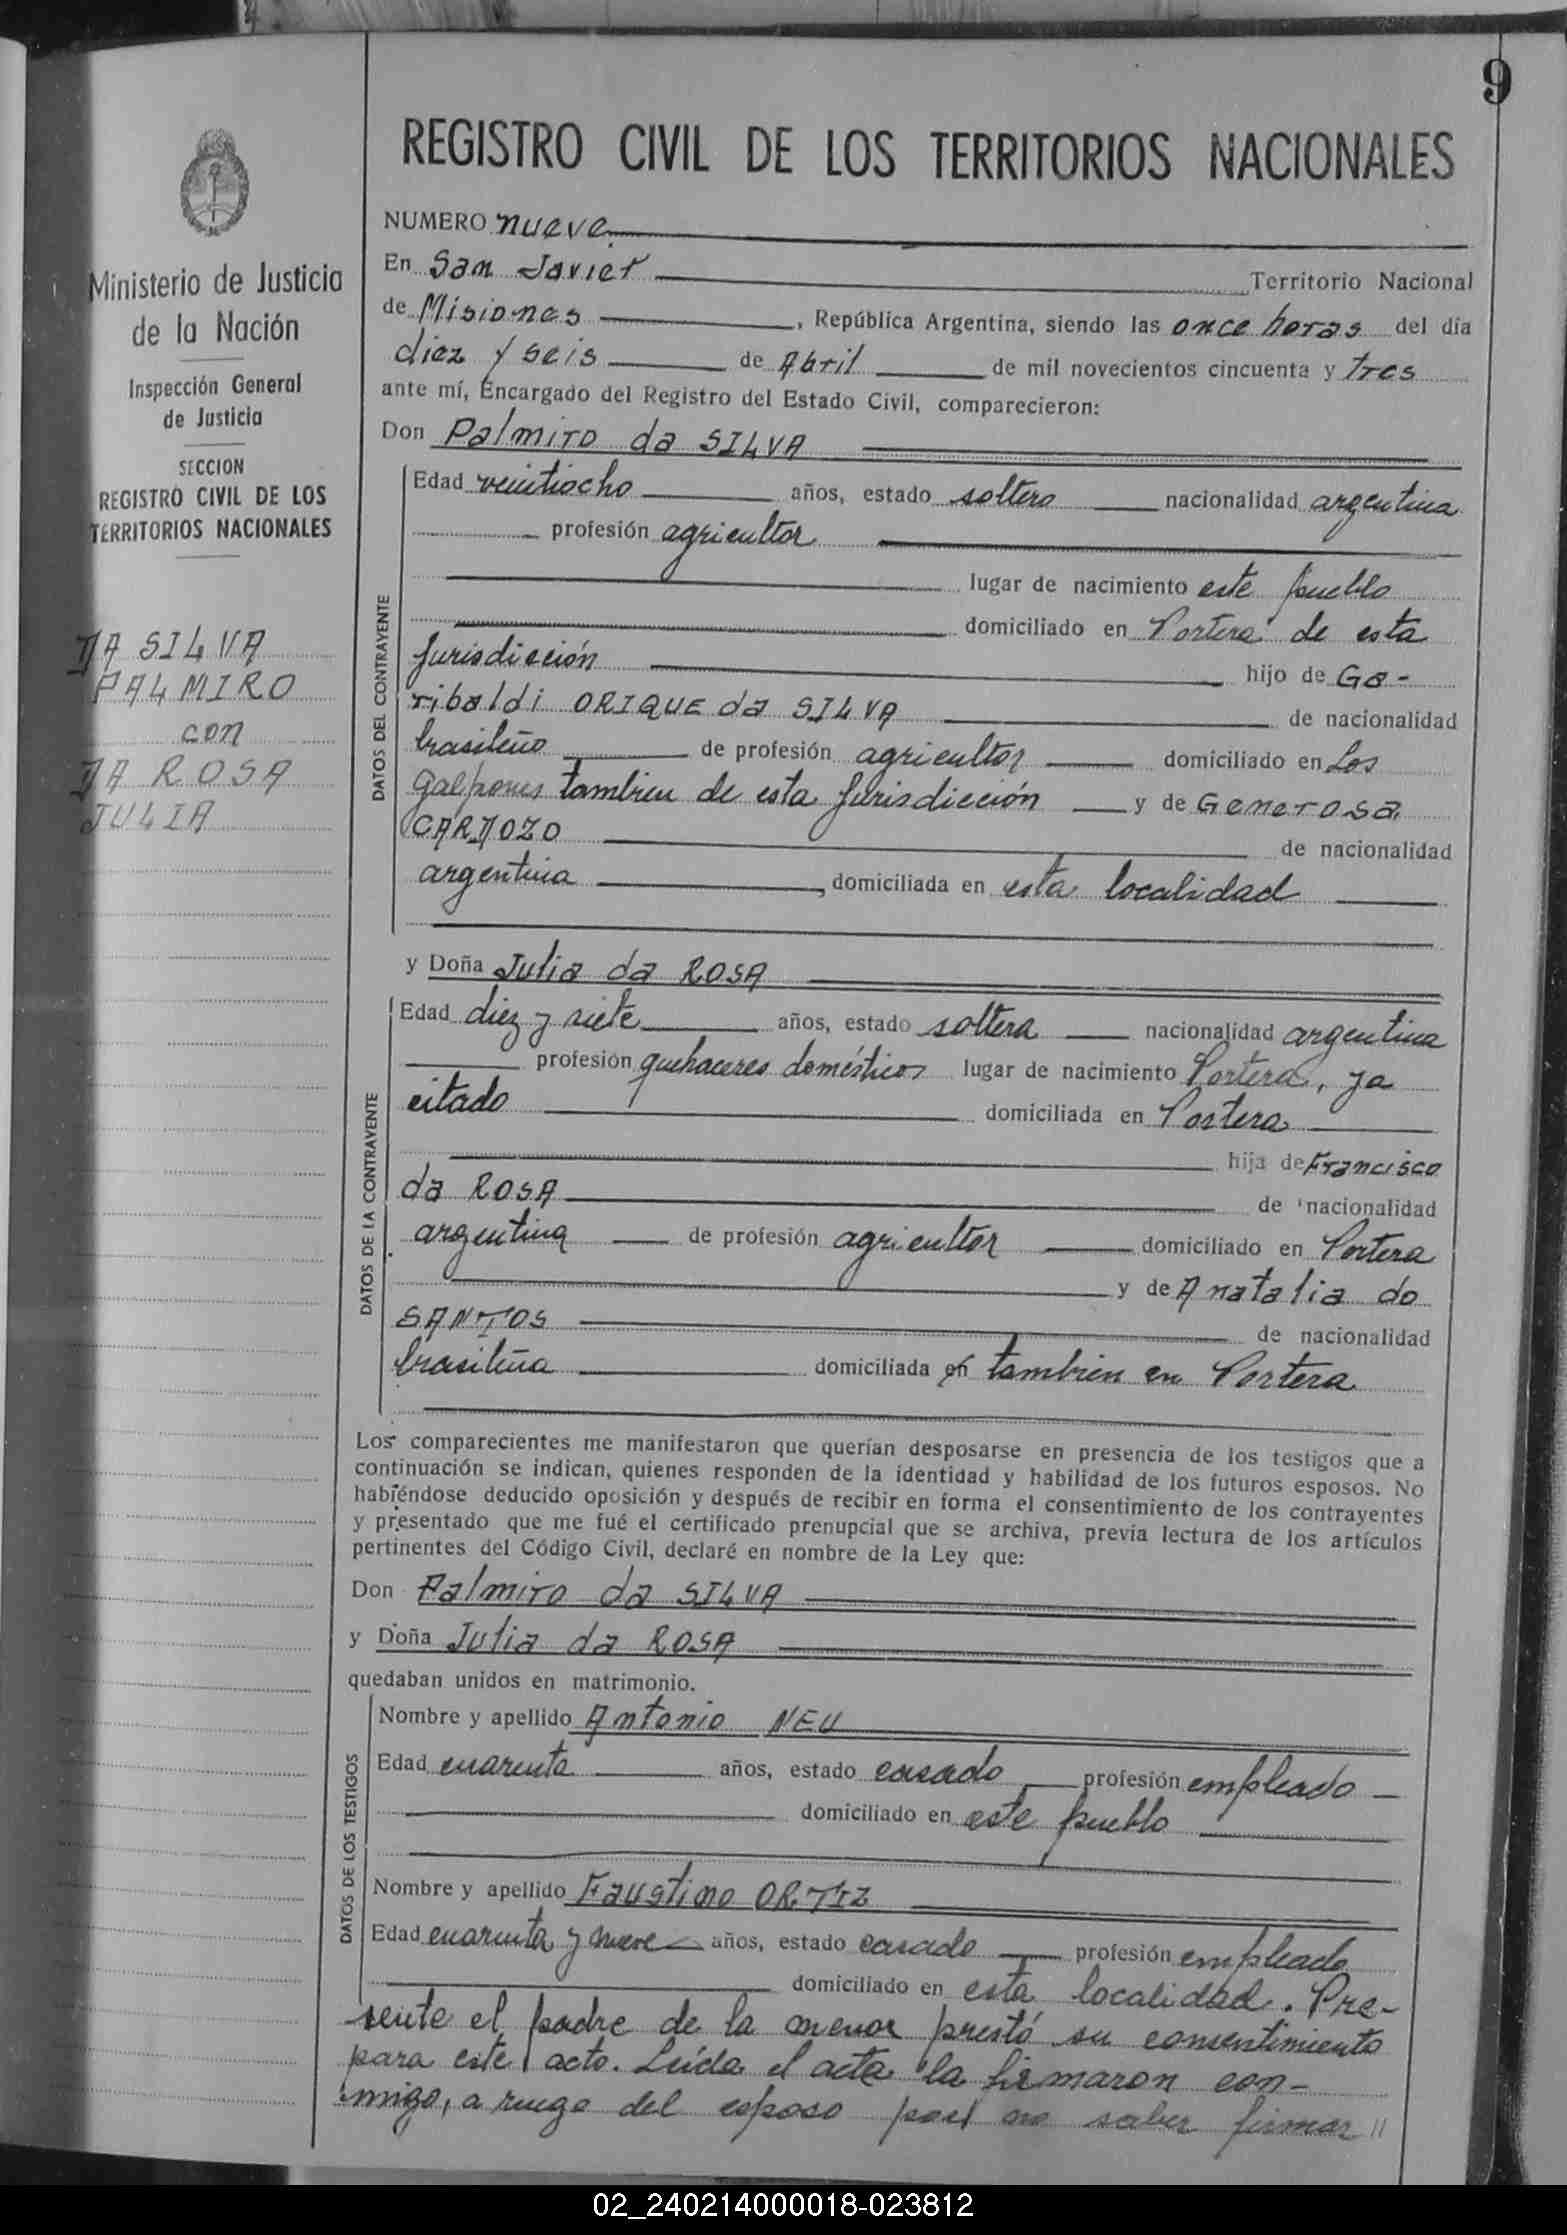 9
REGISTRO CIVIL DE LOS TERRITORIOS NACIONALES
Ministerio de Justicia
de la Nación
Inspección General
de Justicia
SECCION
REGISTRO CIVIL DE LOS
TERRITORIOS NACIONALES
DA SILVA
PALMIRO
con
DA ROSA
JULIA
NUMERO nueve
En San Javier Territorio Nacional
de Misiones, República Argentina, siendo las once horas del día
diez y seis de Abril de mil novecientos cincuenta y tres
ante mí, Encargado del Registro del Estado Civil, comparecieron:
Don Palmiro da SILVA
DATOS DEL CONTRAYENTE
Edad veintiocho años, estado soltero nacionalidad argentina
profesión agricultor
lugar de nacimiento este pueblo
domiciliado en Portera de esta
jurisdicción hijo de Ga-
ribaldi ORIQUE da SILVA de nacionalidad
brasileño de profesión agricultor domiciliado en Los
Galpones tambien de esta jurisdicción y de Generosa
CARDOZO de nacionalidad
argentina, domiciliada en esta localidad
y Doña Julia da ROSA
DATOS DE LA CONTRAYENTE
Edad diez y siete años, estado soltera nacionalidad argentina
profesión quehaceres domésticos lugar de nacimiento Portera, ya
citado domiciliada en Portera
hija de Francisco
da ROSA de nacionalidad
argentina de profesión agricultor domiciliado en Portera
y de Anatalia do
SANTOS de nacionalidad
brasileña domiciliada en tambien en Portera
Los comparecientes me manifestaron que querían desposarse en presencia de los testigos que a
continuación se indican, quienes responden de la identidad y habilidad de los futuros esposos. No
habiéndose deducido oposición y después de recibir en forma el consentimiento de los contrayentes
y presentado que me fué el certificado prenupcial que se archiva, previa lectura de los artículos
pertinentes del Código Civil, declaré en nombre de la Ley que:
Don Palmiro da SILVA
y Doña Julia da ROSA
quedaban unidos en matrimonio.
DATOS DE LOS TESTIGOS
Nombre y apellido Antonio NEU
Edad cuarenta años, estado casado profesión empleado
domiciliado en este pueblo
Nombre y apellido Faustino ORTIZ
Edad cuarenta y nueve años, estado casado profesión empleado
domiciliado en esta localidad. Pre-
sente el padre de la menor prestó su consentimiento
para este acto. Leída el acta la firmaron con-
migo, a ruego del esposo por no saber firmar //
02_240214000018-023812